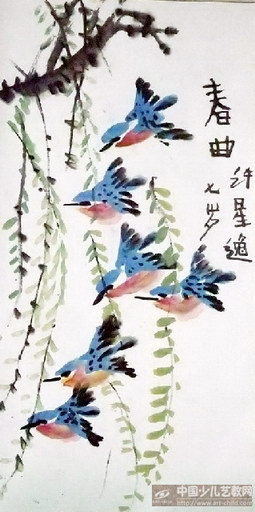 春曲
许星逸
七岁
中国少儿艺教网
www.art-child.com